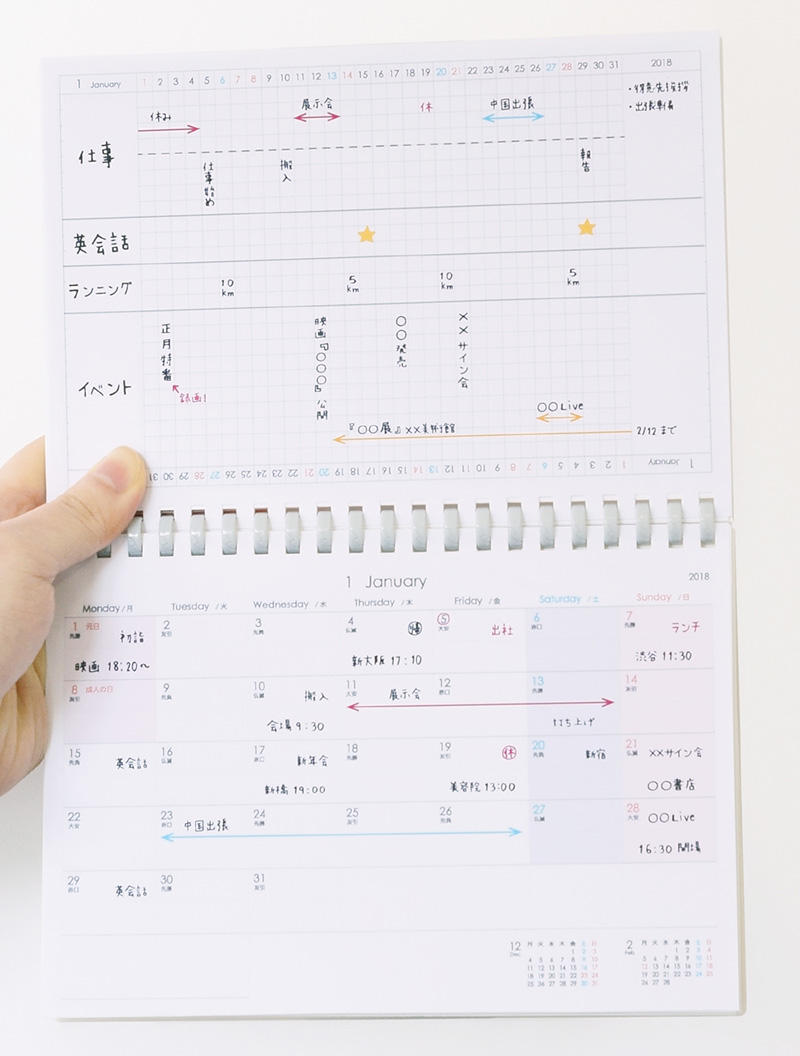 1 January 1 2 3 4 5 6 7 8 9 10 11 12 13 14 15 16 17 18 19 20 21 22 23 24 25 26 27 28 29 30 31 2018
休み 展示会 休 中国出張 ・得意先挨拶
・出張準備
仕事
仕事始め 搬入 報告
英会話
ランニング 10km 5km 10km 5km
イベント
正月特番
録画!
映画『○○○○』公開
○○発売
××サイン会
○○Live
『○○展』××美術館 2/12まで
1 January 1 2 3 4 5 6 7 8 9 10 11 12 13 14 15 16 17 18 19 20 21 22 23 24 25 26 27 28 29 30 31
1 January 2018
Monday/月 Tuesday/火 Wednesday/水 Thursday/木 Friday/金 Saturday/土 Sunday/日
1 元日 2 3 4 5 6 7
先勝 友引 先負 仏滅 大安 赤口 先勝
初詣 出社 ランチ
映画 18:20〜 新大阪 17:10 渋谷 11:30
8 成人の日 9 10 搬入 11 展示会 12 13 14
友引 先負 仏滅 大安 赤口 先勝 友引
会場 9:30 打ち上げ
15 英会話 16 17 新年会 18 19 休 20 新宿 21 ××サイン会
先負 仏滅 赤口 先勝 友引 先負 仏滅
新橋 19:00 美容院 13:00 ○○書店
22 23 中国出張 24 25 26 27 28 ○○Live
大安 赤口 先勝 友引 先負 仏滅 大安
16:30 開場
29 英会話 30 31
赤口 先勝 友引
12 Dec. 月 火 水 木 金 土 日
1 2 3
4 5 6 7 8 9 10
11 12 13 14 15 16 17
18 19 20 21 22 23 24
25 26 27 28 29 30 31
2 Feb. 月 火 水 木 金 土 日
1 2 3 4
5 6 7 8 9 10 11
12 13 14 15 16 17 18
19 20 21 22 23 24 25
26 27 28